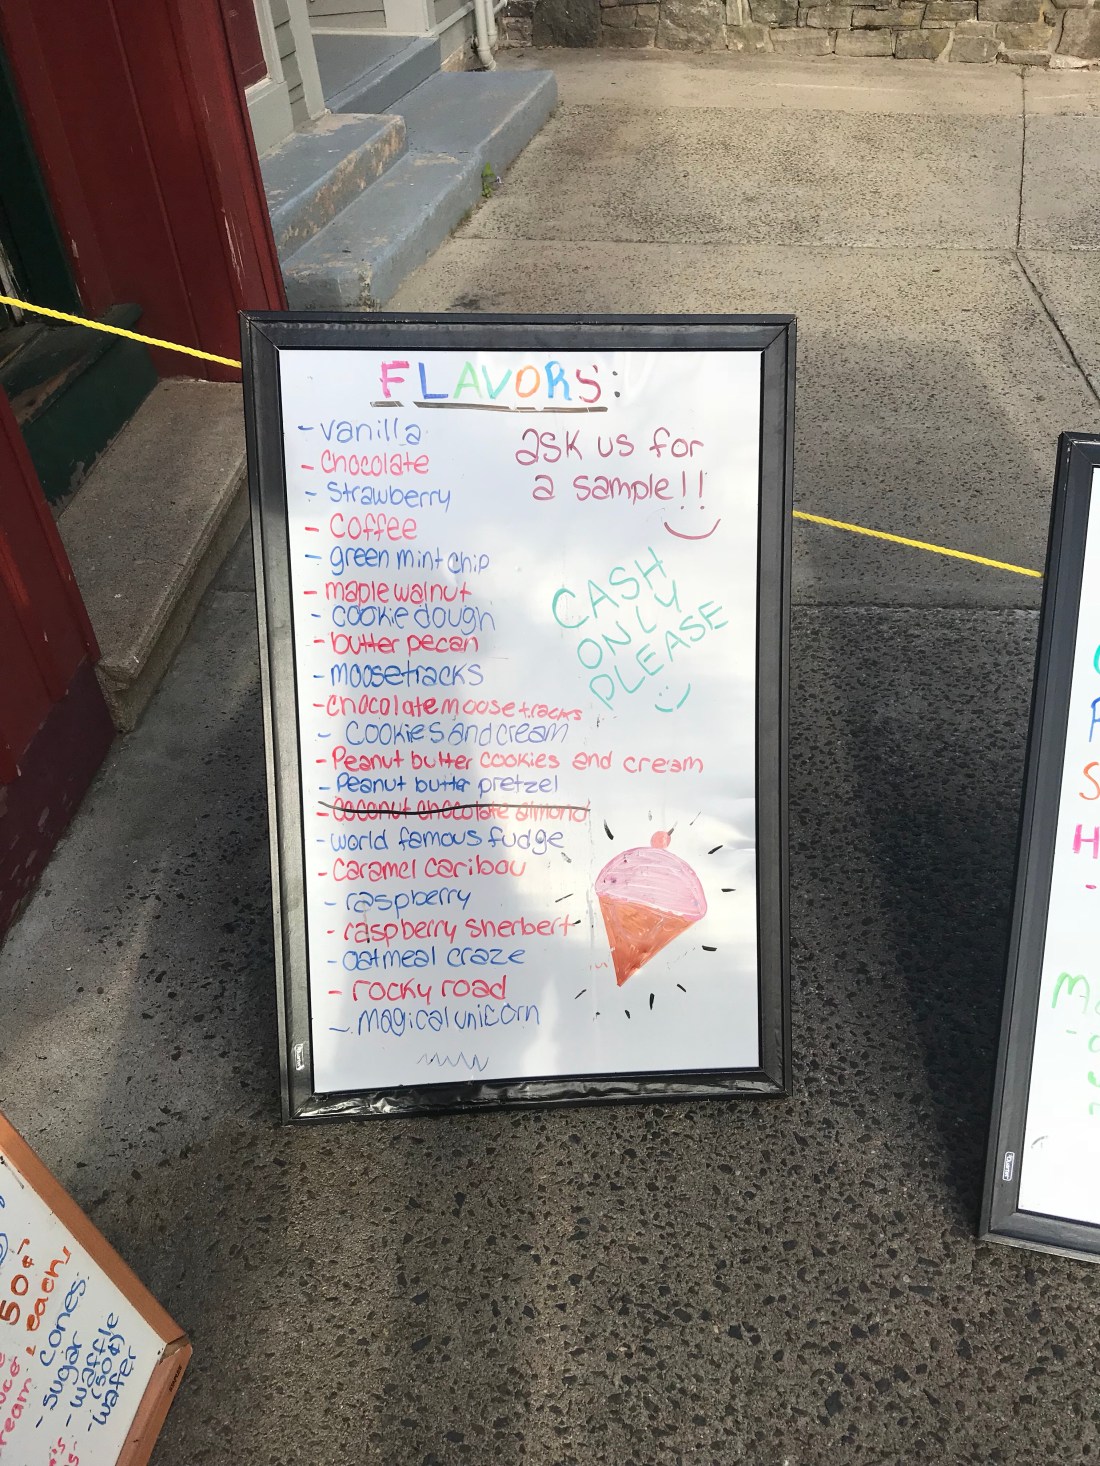 FLAVORS:
- vanilla
- chocolate
- strawberry
- coffee
- green mint chip
- maple walnut
- cookie dough
- butter pecan
- moosetracks
- chocolate moosetracks
- cookies and cream
- Peanut butter cookies and cream
- Peanut butter pretzel
- coconut chocolate almond
- world famous fudge
- caramel caribou
- raspberry
- raspberry sherbert
- oatmeal craze
- rocky road
- magical unicorn
ask us for
a sample!!
CASH
ONLY
PLEASE
50¢
each
cones:
- sugar
- waffle
(50¢)
- wafer